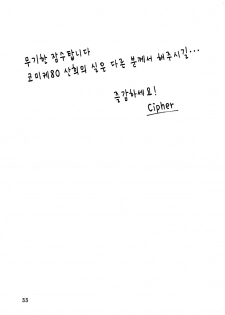 무기한 잠수탑니다
코미케80 산회의 실은 다른 분께서 해주시길...
즐감하세요!
Cipher
33